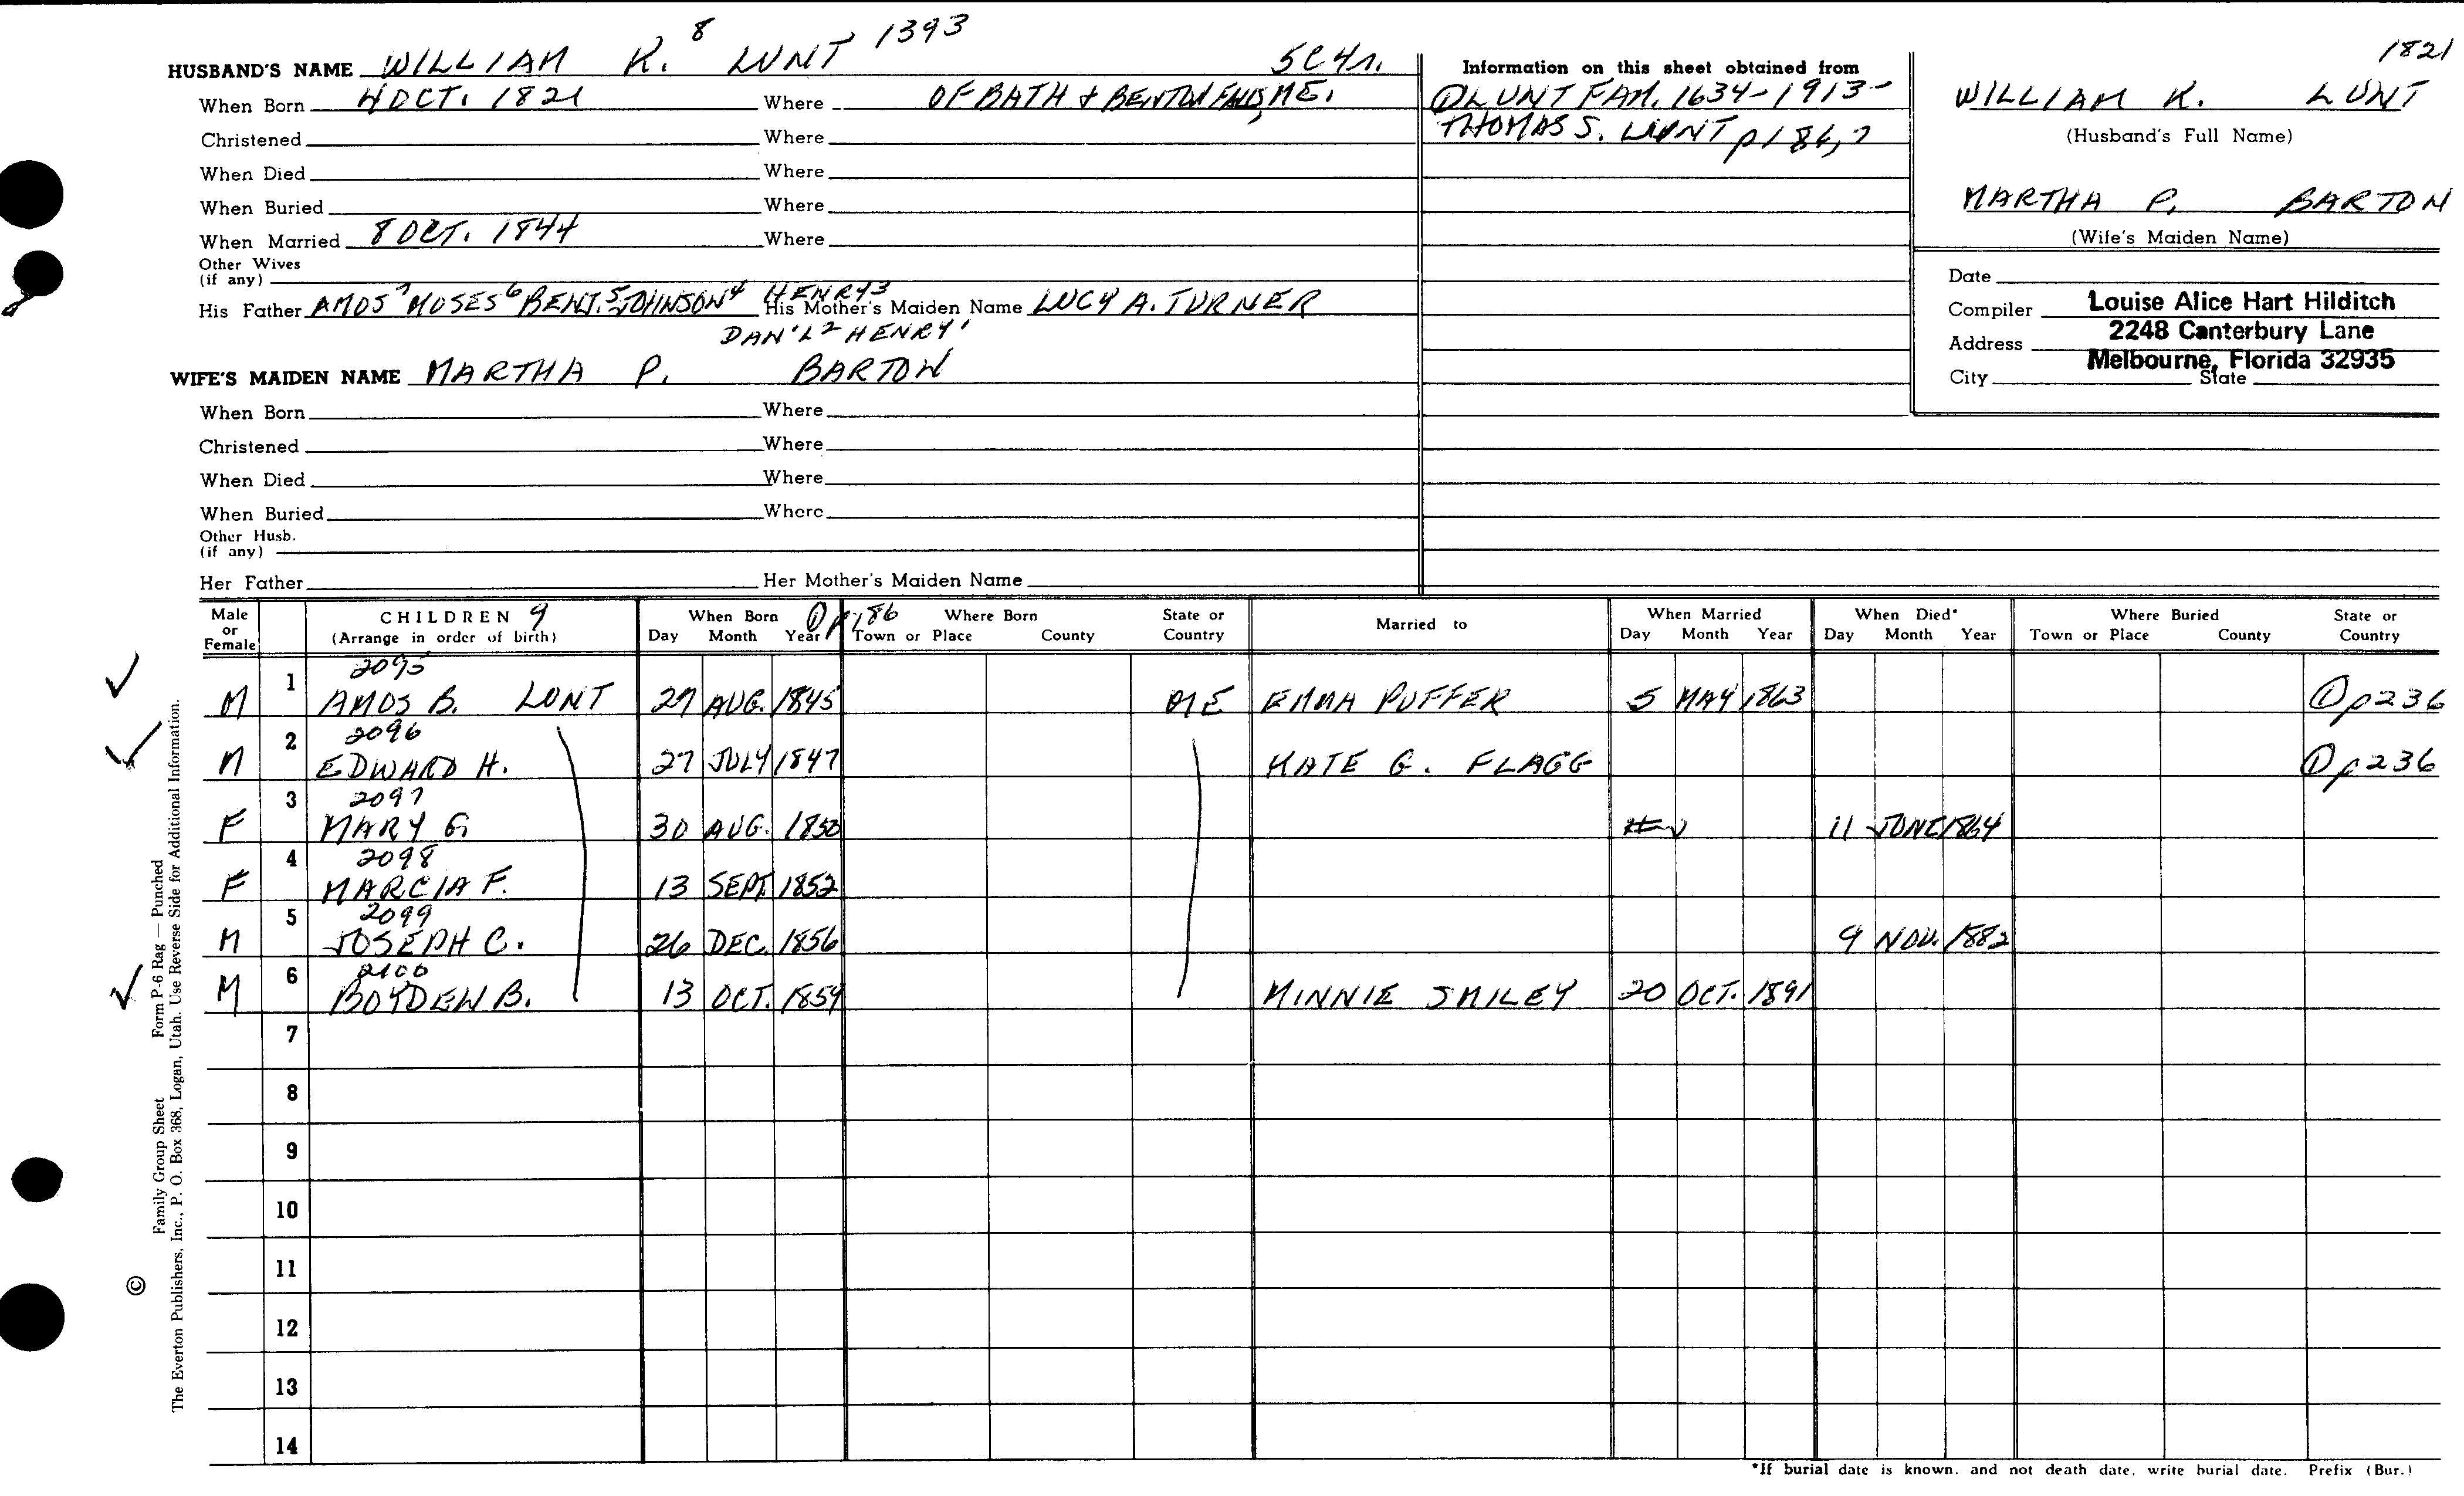 HUSBAND'S NAME WILLIAM K. 8 LUNT 1393 5C4n.
When Born 4 OCT. 1821 Where OF BATH & BENTON FALLS, ME.
Christened Where
When Died Where
When Buried Where
When Married 8 OCT. 1844 Where
Other Wives
(if any)
His Father AMOS 7 MOSES 6 BENJ. 5 JOHNSON 4 HENRY 3 His Mother's Maiden Name LUCY A. TURNER
DAN'L 2 HENRY 1
WIFE'S MAIDEN NAME MARTHA P. BARTON
When Born Where
Christened Where
When Died Where
When Buried Where
Other Husb.
(if any)
Her Father Her Mother's Maiden Name
Information on this sheet obtained from
① LUNT FAM. 1634-1913-
THOMAS S. LUNT p 186, 7
1821
WILLIAM K. LUNT
(Husband's Full Name)
MARTHA P. BARTON
(Wife's Maiden Name)
Date
Compiler Louise Alice Hart Hilditch
Address 2248 Canterbury Lane
Melbourne, Florida 32935
City State
Male or Female CHILDREN 9 (Arrange in order of birth) When Born Day Month Year ① p 186 Where Born Town or Place County State or Country Married to When Married Day Month Year When Died* Day Month Year Where Buried Town or Place County State or Country
2095
M 1 AMOS B. LUNT 27 AUG. 1845 ME EMMA PUFFER 5 MAY 1863 ① p 236
2096
M 2 EDWARD H. 27 JULY 1847 KATE G. FLAGG ① p 236
2097
F 3 MARY G. 30 AUG. 1850 11 JUNE 1864
2098
F 4 MARCIA F. 13 SEPT. 1852
2099
M 5 JOSEPH C. 26 DEC. 1856 9 NOV. 1882
2100
M 6 BOYDEN B. 13 OCT. 1859 MINNIE SMILEY 20 OCT. 1891
7
8
9
10
11
12
13
14
*If burial date is known, and not death date, write burial date. Prefix (Bur.)
Family Group Sheet Form P-6 Rag — Punched
© The Everton Publishers, Inc., P. O. Box 368, Logan, Utah. Use Reverse Side for Additional Information.